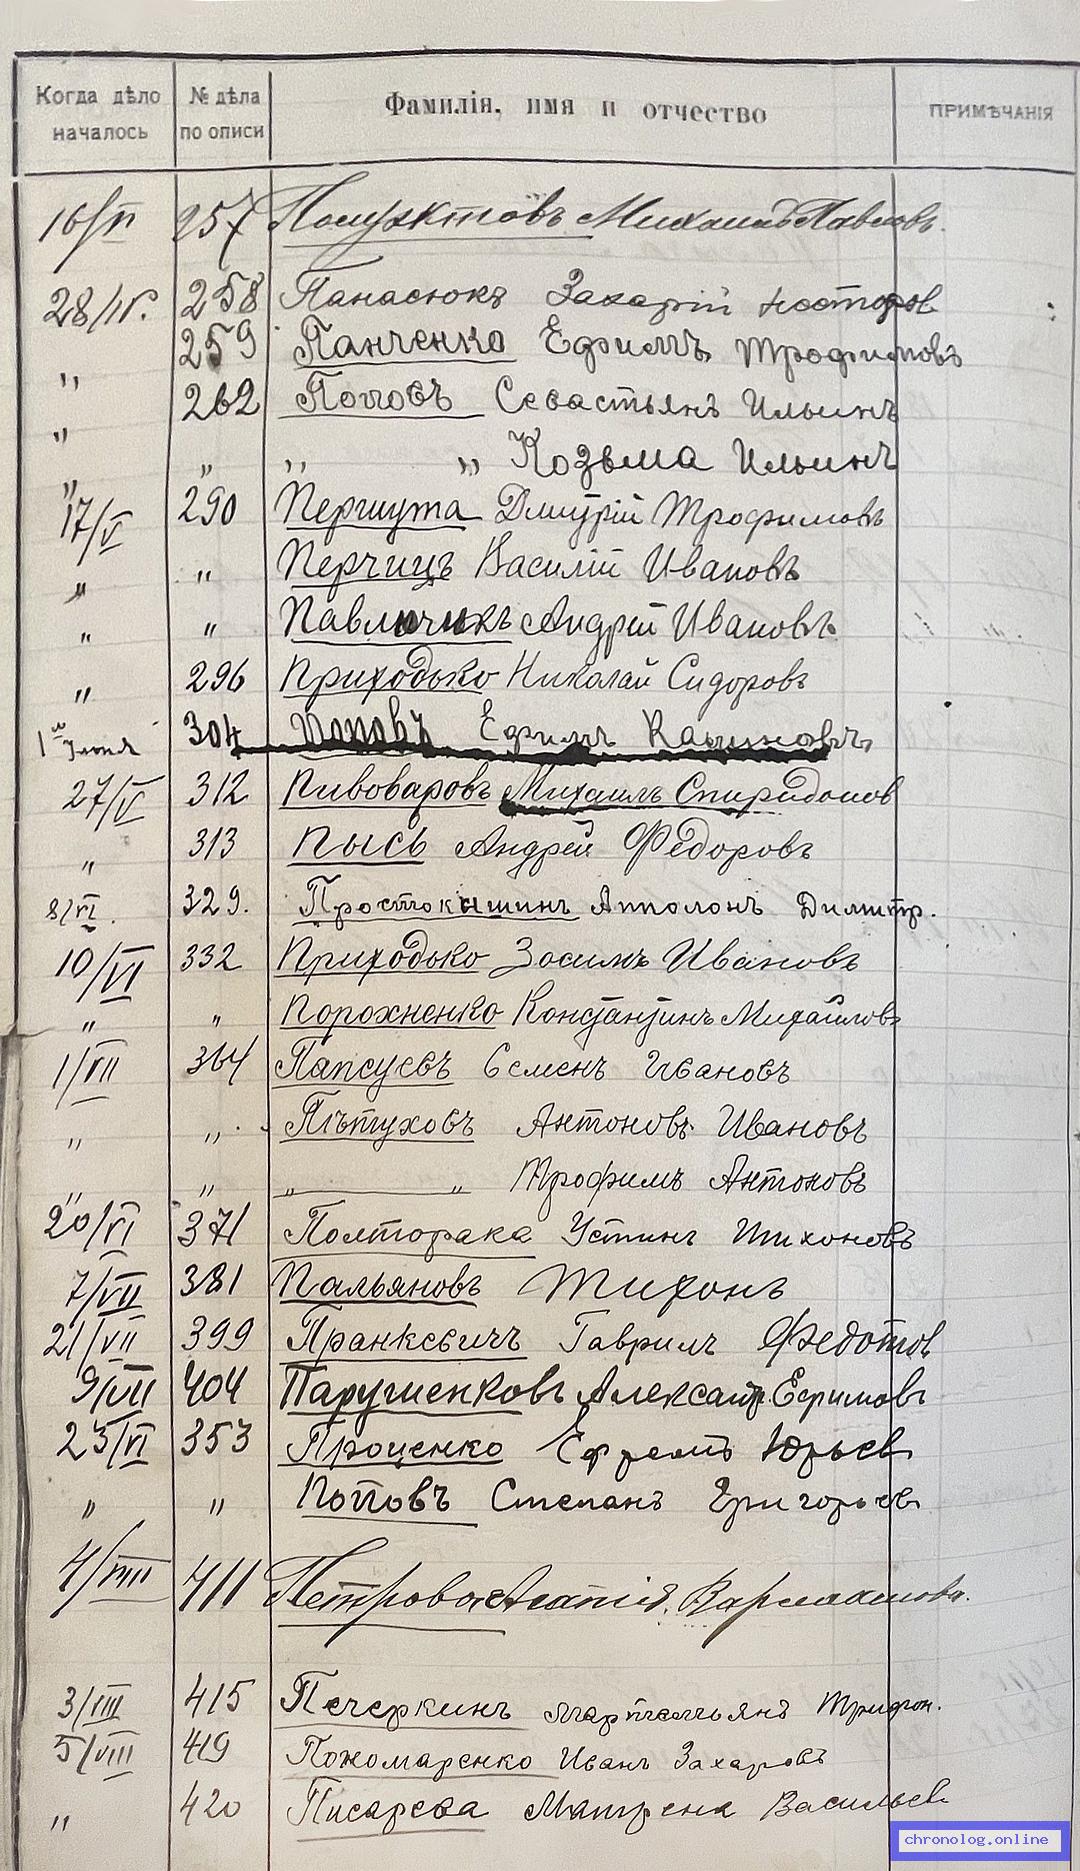 Когда дѣло началось № дѣла по описи Фамилія, имя и отчество ПРИМѢЧАНІЯ
257 Михаилъ Павловъ.
28/IV. 258 Панасюкъ Захарій Несторов
„ 259 Панченко Ефимъ Трофимовъ
„ 262 Поповъ Севастьянъ Ильинъ
„ „ „ „ Козьма Ильинъ
17/V 290 Першута Дмитрій Трофимовъ
„ „ Перчицъ Василій Ивановъ
„ „ Павлючикъ Андрей Ивановъ
„ 296 Приходько Николай Сидоровъ
1го Іюня 304 Поповъ Ефимъ
27/V 312 Пивоваровъ Михаилъ Спиридонов
„ 313 Пысь Андрей Федоровъ
8/VI. 329. Простокишинъ Апполонъ Димитр.
10/VI 332 Приходько Зосимъ Ивановъ
„ „ Порохненко Константинъ Михайловъ
1/VII 364 Папсуевъ Семенъ Ивановъ
„ „ Пѣтуховъ Антоновъ Ивановъ
„ „ „ „ Трофимъ Антоновъ
20/VI 371 Полторака Устинъ Тихоновъ
7/VII 381 Пальяновъ Тихонъ
21/VII 399 Пранкевичъ Гаврилъ Федотов
9/VII 404 Парушенковъ Александр. Ефимовъ
23/VI 353 Проценко Ефремъ Юрьев
„ „ Поповъ Степанъ Григорьев
4/VIII 411 Петрова
3/VIII 415 Печеркинъ Мартемьянъ Трифон.
5/VIII 419 Пономаренко Иванъ Захаровъ
„ 420 Писарева Матрена Васильев
chronolog.online